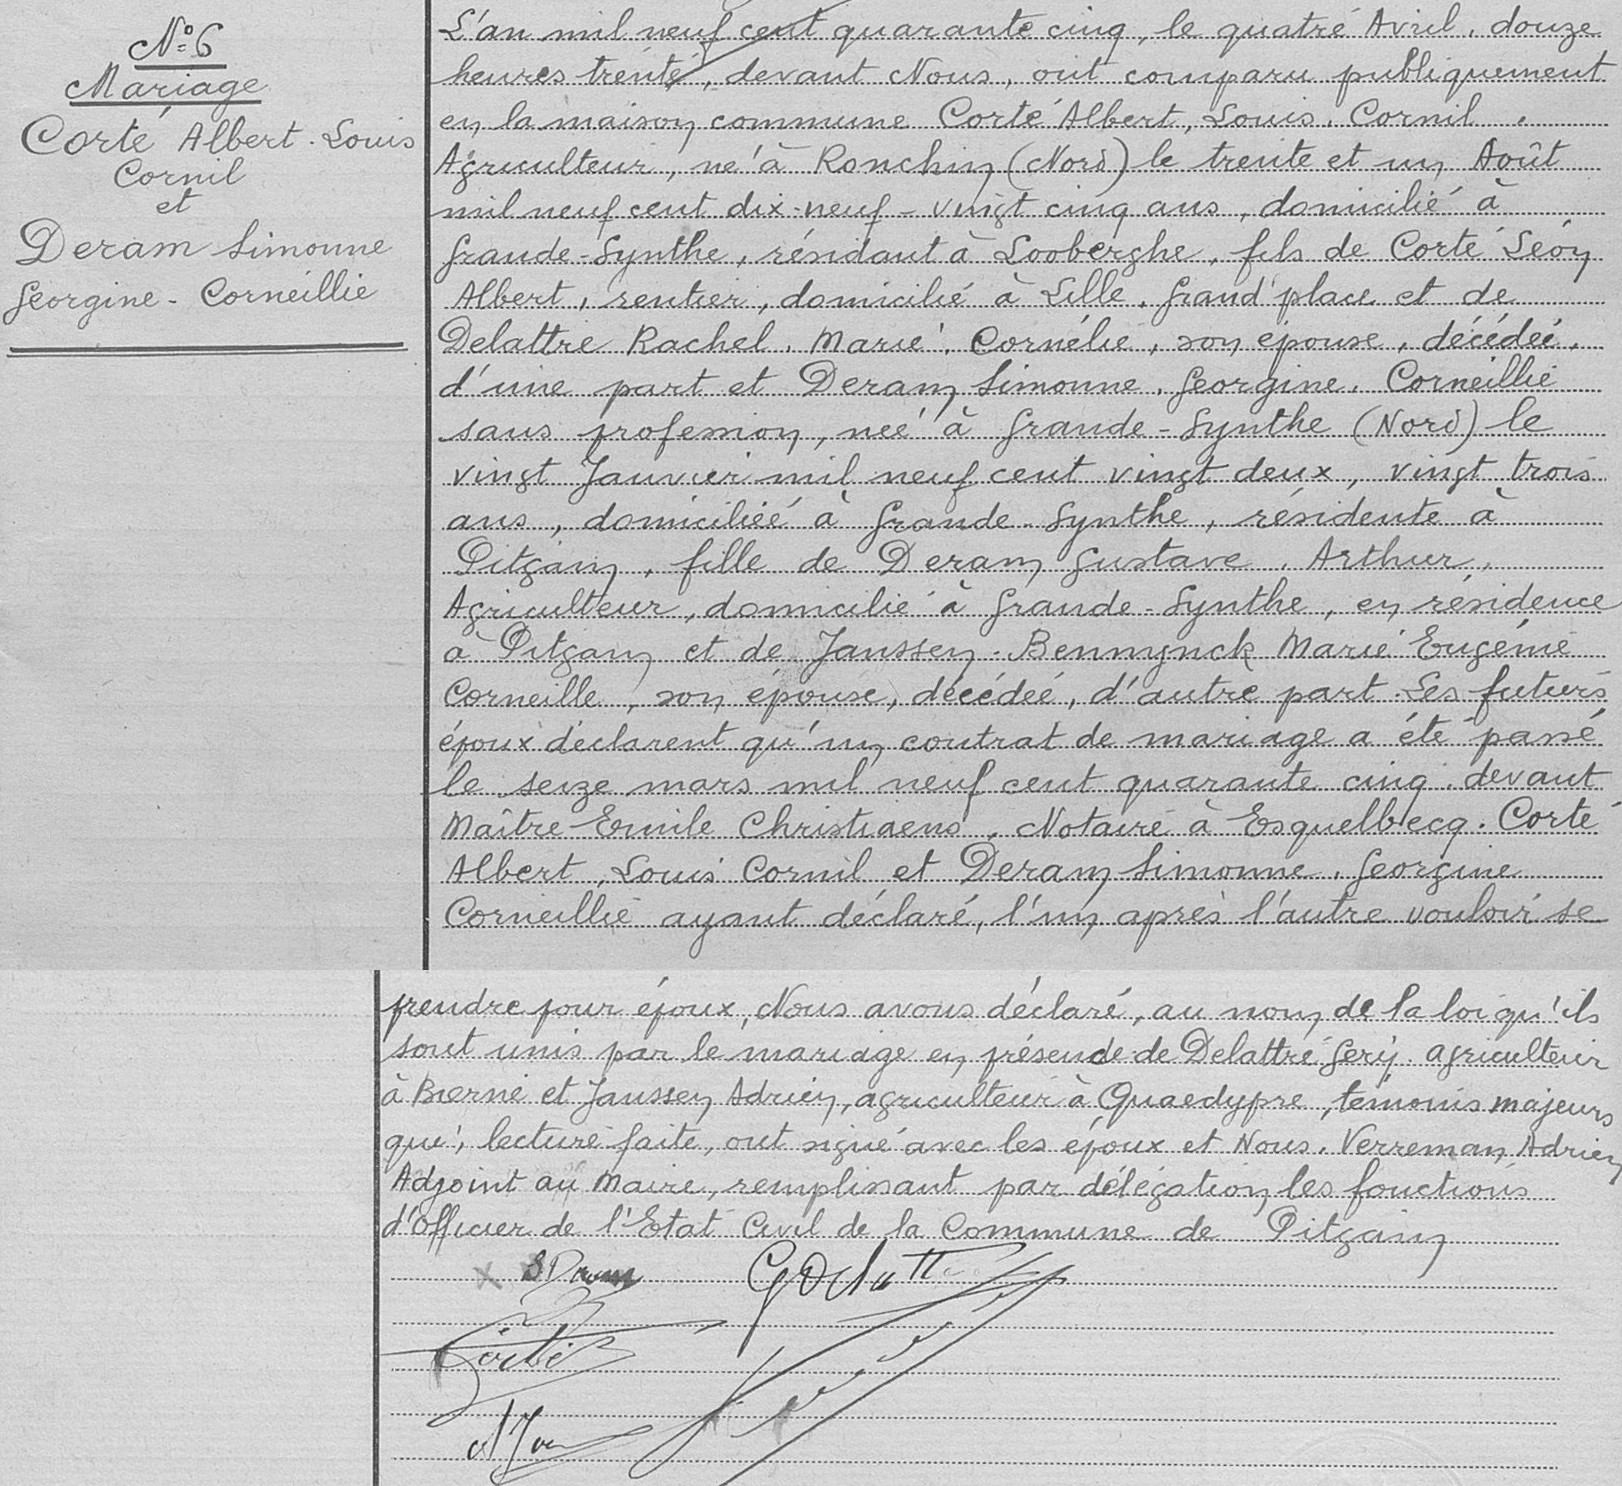 N° 6
Mariage
Corté Albert. Louis
Cornil
et
Deram Simonne
Georgine - Corneillie
L'an mil neuf cent quarante cinq, le quatre Avril, douze
heures trente, devant Nous, ont comparu publiquement
en la maison commune Corté Albert, Louis, Cornil,
Agriculteur, né à Ronchin (Nord) le trente et un Août
mil neuf cent dix-neuf - vingt cinq ans, domicilié à
Grande-Synthe, résidant à Looberghe, fils de Corté Léon
Albert, rentier, domicilié à Lille, Grand'place et de
Delattre Rachel, Marie, Cornélie, son épouse, décédée,
d'une part et Deram Simonne, Georgine, Corneillie
sans profession, née à Grande-Synthe (Nord) le
vingt Janvier mil neuf cent vingt deux, vingt trois
ans, domiciliée à Grande-Synthe, résidente à
Pitgam, fille de Deram Gustave, Arthur,
Agriculteur, domicilié à Grande-Synthe, en résidence
à Pitgam et de Janssen-Bennynck Marie Eugénie
Corneille, son épouse, décédée, d'autre part. Les futurs
époux déclarent qu'un contrat de mariage a été passé
le seize mars mil neuf cent quarante cinq, devant
Maître Emile Christiaens, Notaire à Esquelbecq. Corté
Albert, Louis Cornil et Deram Simonne, Georgine
Corneillie ayant déclaré, l'un après l'autre vouloir se
prendre pour époux, Nous avons déclaré, au nom de la loi qu'ils
sont unis par le mariage en présence de Delattre Gery, agriculteur
à Bierne et Janssen Adrien, agriculteur à Quaedypre, témoins majeurs
qui, lecture faite, ont signé avec les époux et Nous, Verreman Adrien
Adjoint au Maire, remplissant par délégation les fonctions
d'Officier de l'Etat Civil de la Commune de Pitgam
x SDeram GDelatt
Corté